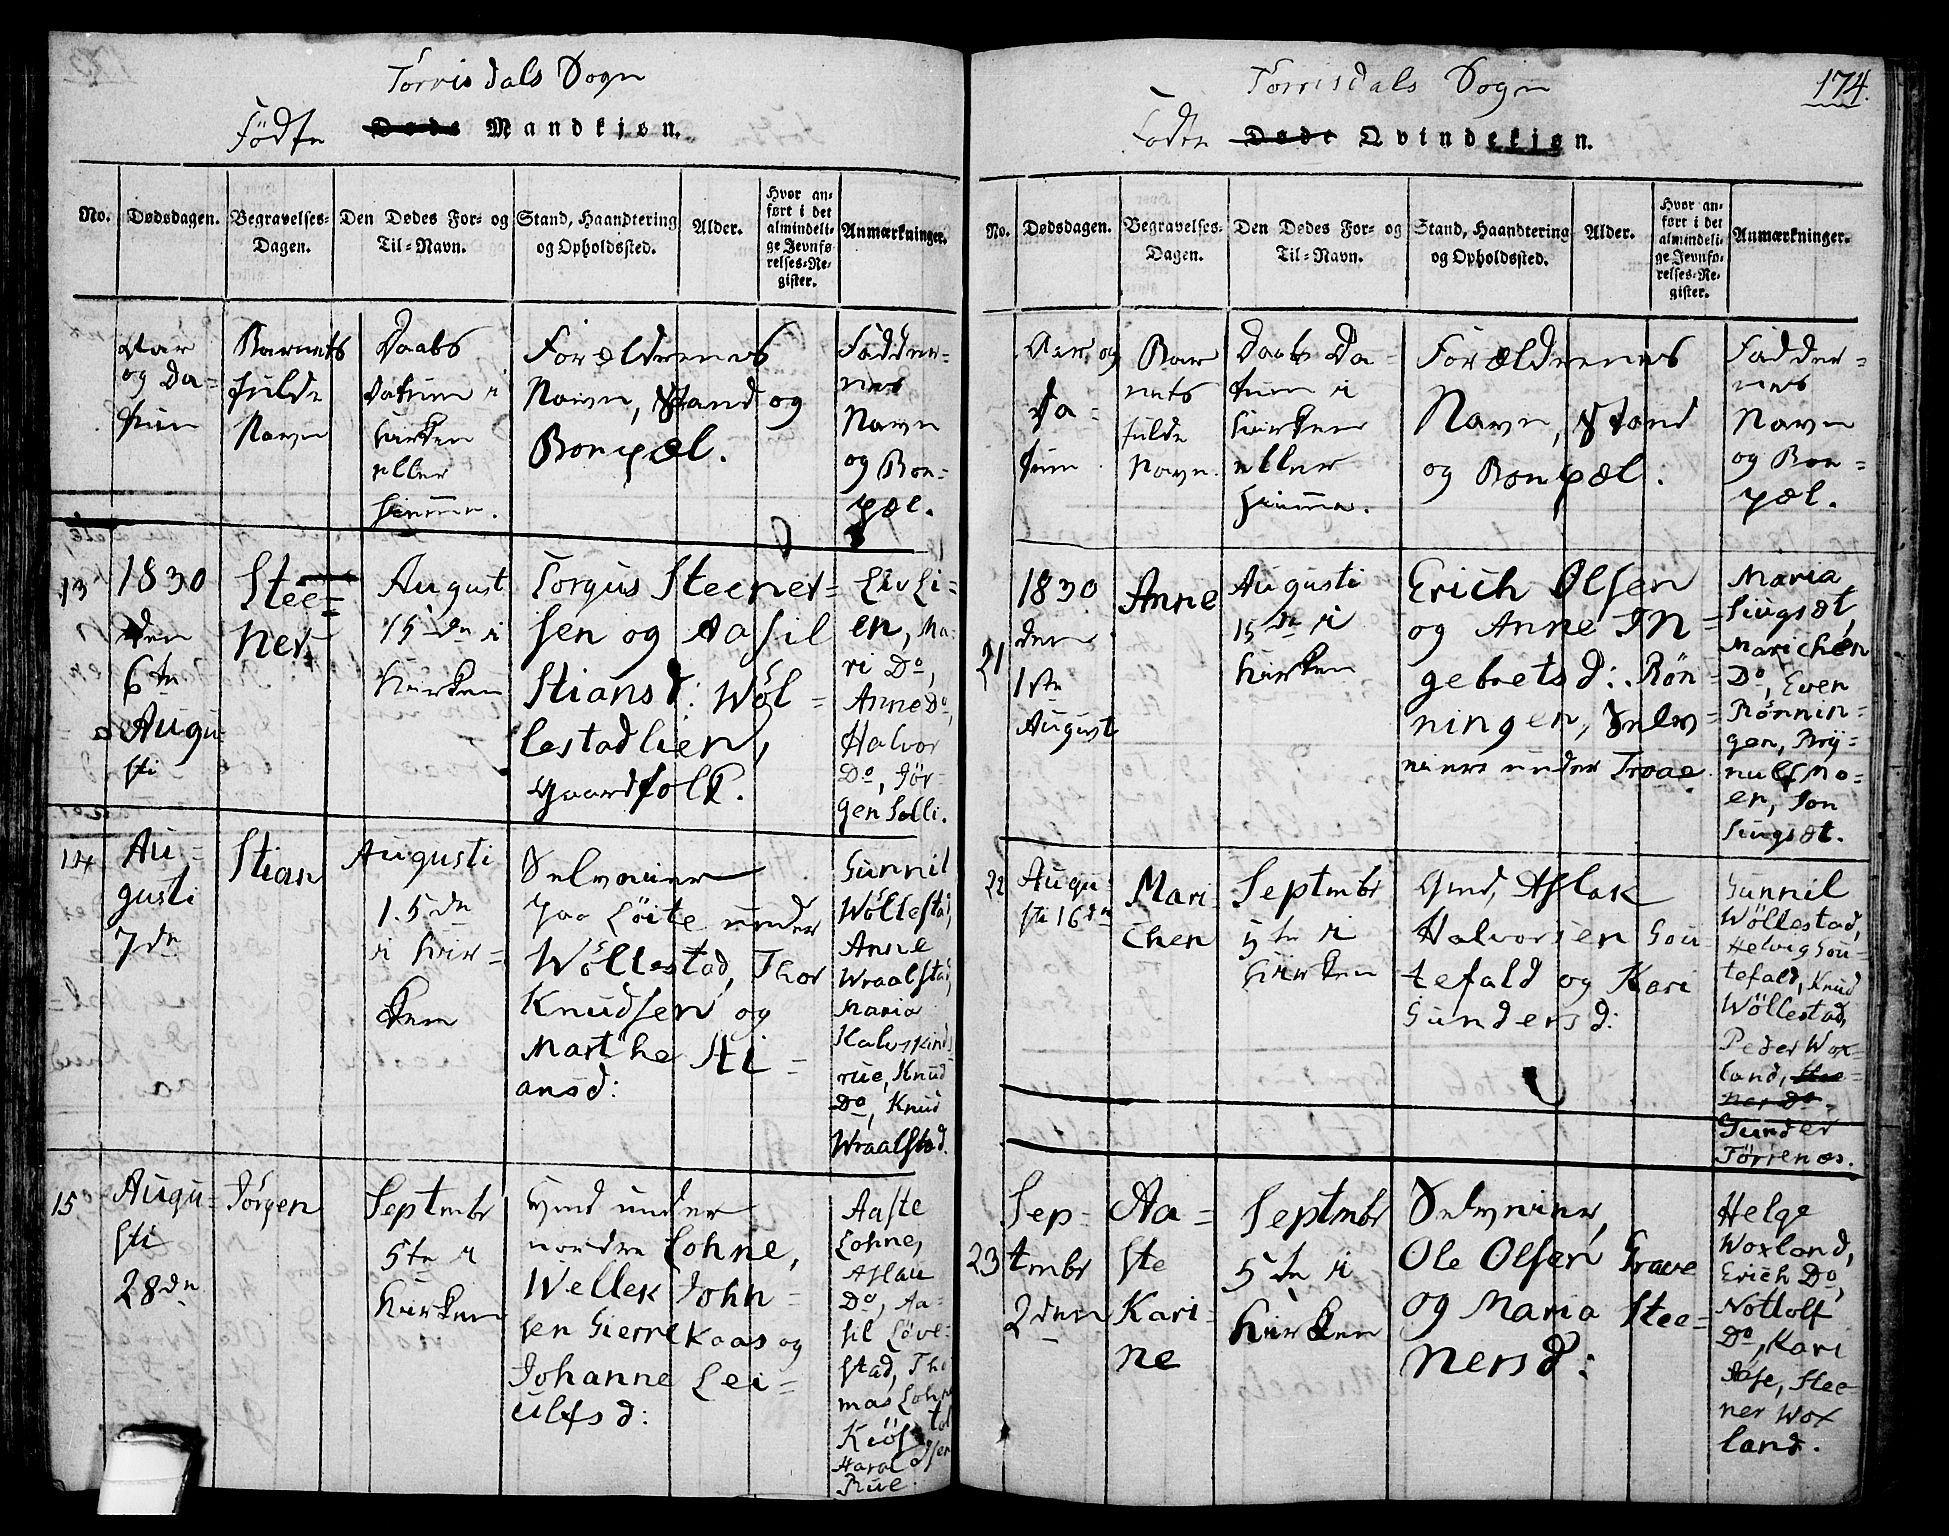 Torrisdals Sogn
Fødte Døde Mandkjøn.
No.
Dødsdagen.
Begravelses-
Dagen.
Den Dødes For- og
Til-Navn.
Stand, Haandtering
og Opholdssted.
Alder.
Hvor an-
ført i det
almindeli-
ge Jevnfø-
relses-Re-
gister.
Anmærkninger.
Aar
og Da-
tum
Barnets
fulde
Navn
Daabs
Datum i
Kirken
eller
hiemme.
Forældrenes
Navn, Stand og
Bopæl.
Fadder-
nes
Navn
og Bo-
pæl.
13
1830
den
6te
Augu-
sti
Stee-
ner
August
15de i
Kirken
Torgus Steener-
sen og Aasil
Stiansd: Wöl-
lestadlien,
Gaardfolk.
Liv Li-
en, Ma-
ri Do,
Anne Do,
Halvor
Do, Jör-
gen Solli.
14
Au-
gusti
7de
Stian
Augusti
15de
i Kir-
ken
Selveier
paa Löite under
Wöllestad, Thor
Knudsen og
Marthe Sti-
ansd:
Gunnil
Wöllestad,
Anne
Wraalstad,
Maria
Kalvskind-
rue, Knud
Do, Knud
Wraalstad.
15
Augu-
sti
28de
Jörgen
Septmbr
5te i
Kirken
Hmd under
nordre Lohne,
Wellek John-
sen Gierrekaas og
Johanne Lei-
ulfsd:
Aaste
Lohne,
Aslau
Do, Aa-
sil Löve-
stad, Tho
mas Lohne
Rue.
Torrisdals Sogn
174.
Fødte Døde Qvindekjøn.
No.
Dødsdagen.
Begravelses-
Dagen.
Den Dødes For- og
Til-Navn.
Stand, Haandtering
og Opholdssted.
Alder.
Hvor an-
ført i det
almindeli-
ge Jevnfø-
relses-Re-
gister.
Anmærkninger.
Aar og
Da-
tum
Bar
nets
fulde
Navn.
Daabs Da-
tum i
Kirken
eller
hiemme.
Forældrenes
Navn, Stand
og Bopæl.
Fadder-
nes
Navn
og Bo-
pæl.
21
1830
den
1ste
August
Anne
Augusti
15de i
Kirken
Erich Olsen
og Anne In-
gebretsd: Rön-
ningen, Selv-
eiere under Traae.
Maria
Marichen
Do, Even
Rönnin-
gen, Bry-
nulf Mo-
en, Jon
22
Augu-
sti 16de
Mari
chen
Septmbr
5te i
Kirken
Gmd, Aslak
Halvorsen Gou-
tefald og Kari
Gundersd:
Gunnil
Wöllestad,
Helvig Gou-
tefald, Knud
Wöllestad,
Peder Wox-
land, Stee-
ner Do.
Gunder
Törrenæs.
23
Sep-
tmbr
2den
Aa-
ste
Kari-
ne
Septmbr
5te i
Kirken
Selveier,
Ole Olsen Traae
og Maria Stee-
nersd:
Helge
Woxland,
Erich Do,
Nottolf
Do, Kari
Aase, Stee
ner Wox
land.